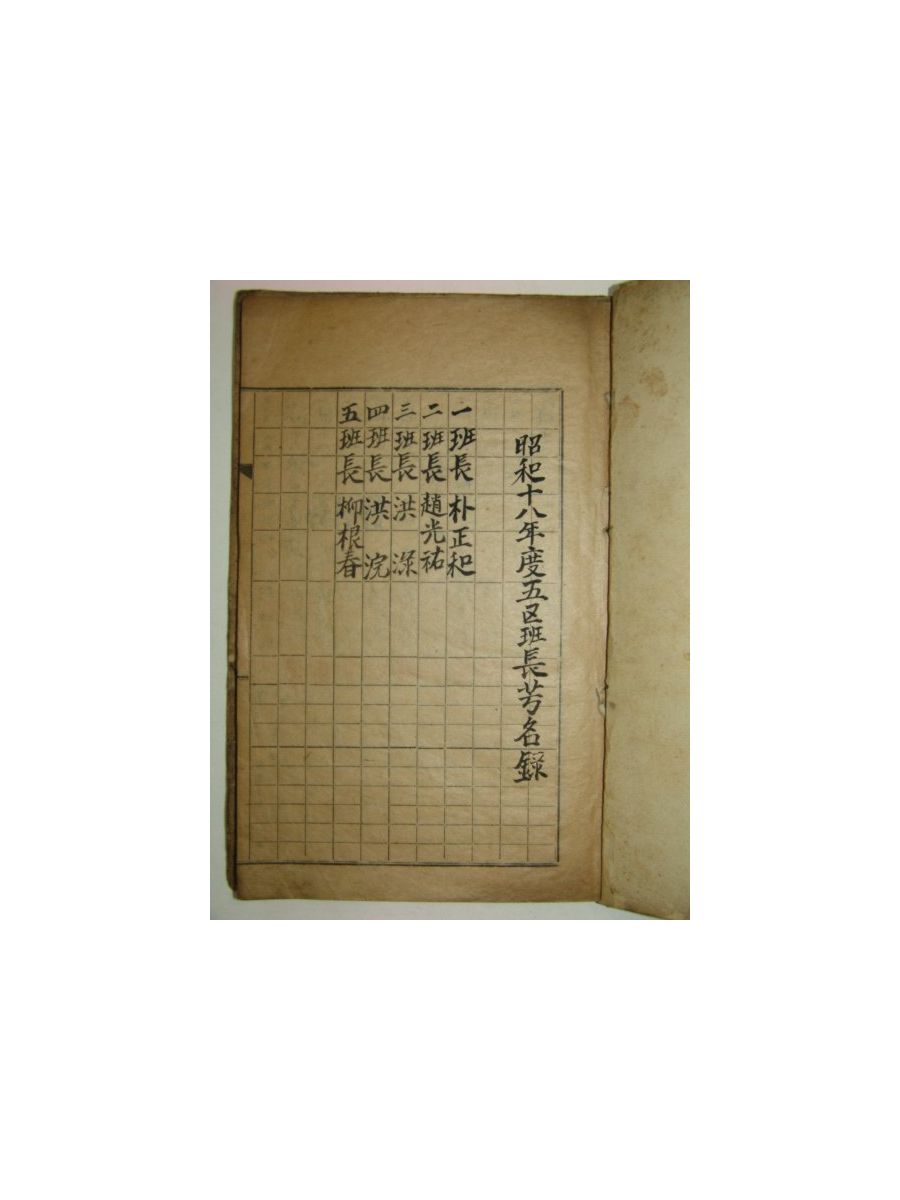 昭和十八年度五区班長芳名錄
一班長 朴正和
二班長 趙光祐
三班長 洪 深
四班長 洪 浣
五班長 柳根春